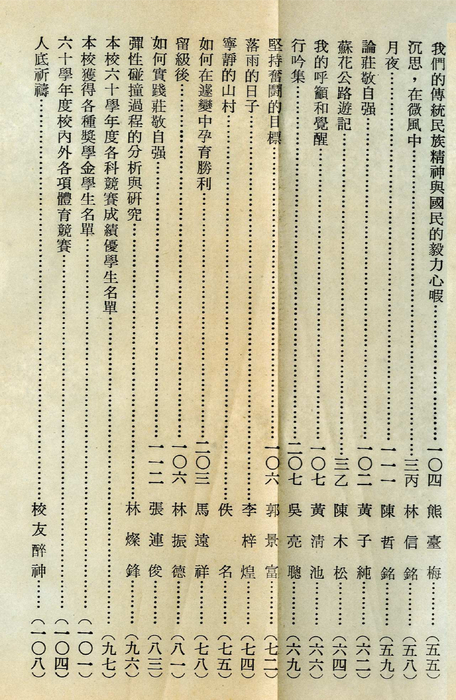 我們的傳統民族精神與國民的毅力心暇⋯⋯一〇四 熊臺梅⋯⋯(五五)
沉思,在微風中⋯⋯三丙 林信銘⋯⋯(五八)
月夜⋯⋯一一一 陳哲銘⋯⋯(五九)
論莊敬自强⋯⋯一〇二 黃子純⋯⋯(六二)
蘇花公路遊記⋯⋯三乙 陳木松⋯⋯(六四)
我的呼籲和覺醒⋯⋯一〇七 黃清池⋯⋯(六六)
行吟集⋯⋯二〇七 吳亮聰⋯⋯(六九)
堅持奮鬪的目標⋯⋯一〇六 郭景富⋯⋯(七二)
落雨的日子⋯⋯李梓煌⋯⋯(七四)
寧靜的山村⋯⋯佚名⋯⋯(七五)
如何在遽變中孕育勝利⋯⋯二〇三 馬遠祥⋯⋯(七八)
留級後⋯⋯一〇六 林振德⋯⋯(八一)
如何實踐莊敬自强⋯⋯一一二 張連俊⋯⋯(八三)
彈性碰撞過程的分析與研究⋯⋯林燦鋒⋯⋯(九六)
本校六十學年度各科競賽成績優學生名單⋯⋯(九七)
本校獲得各種獎學金學生名單⋯⋯(一〇一)
六十學年度校內外各項體育競賽⋯⋯(一〇四)
人底祈禱⋯⋯校友醉神⋯⋯(一〇八)